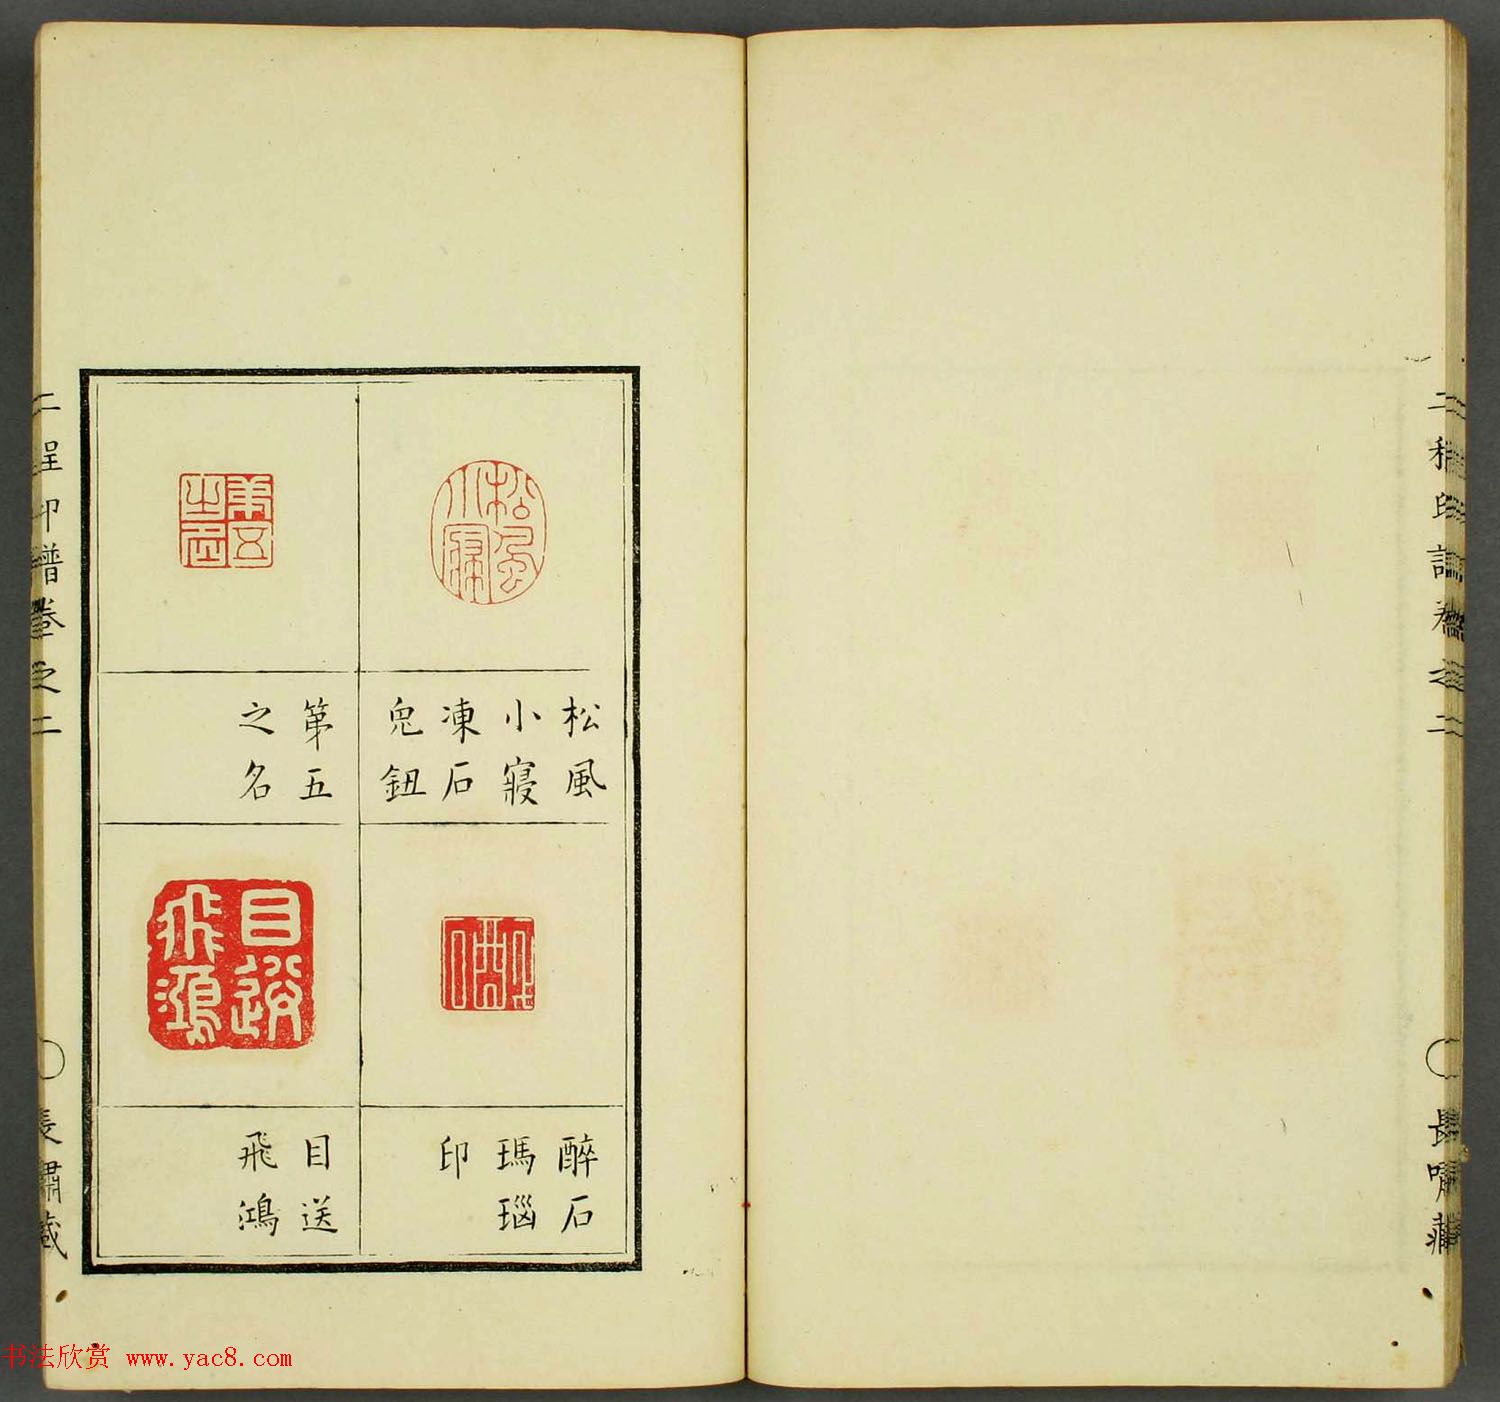 二程印譜卷之二
長嘯藏
松風
小寢
凍石
兔鈕
松風小寢
第五
之名
第五之名
醉石
瑪瑙
印
醉石
目送
飛鴻
目送飛鴻
二程印譜卷之二
長嘯藏
书法欣赏 www.yac8.com